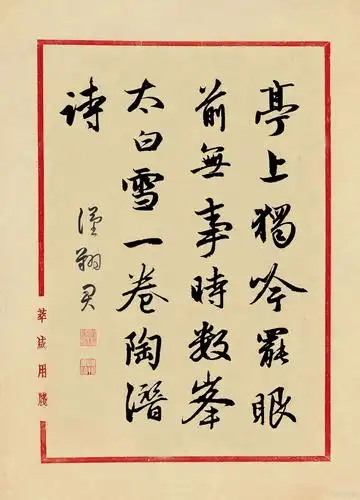 亭上獨吟罷眼
前無事時數峯
太白雪一卷陶潛
詩
翔君
用牋